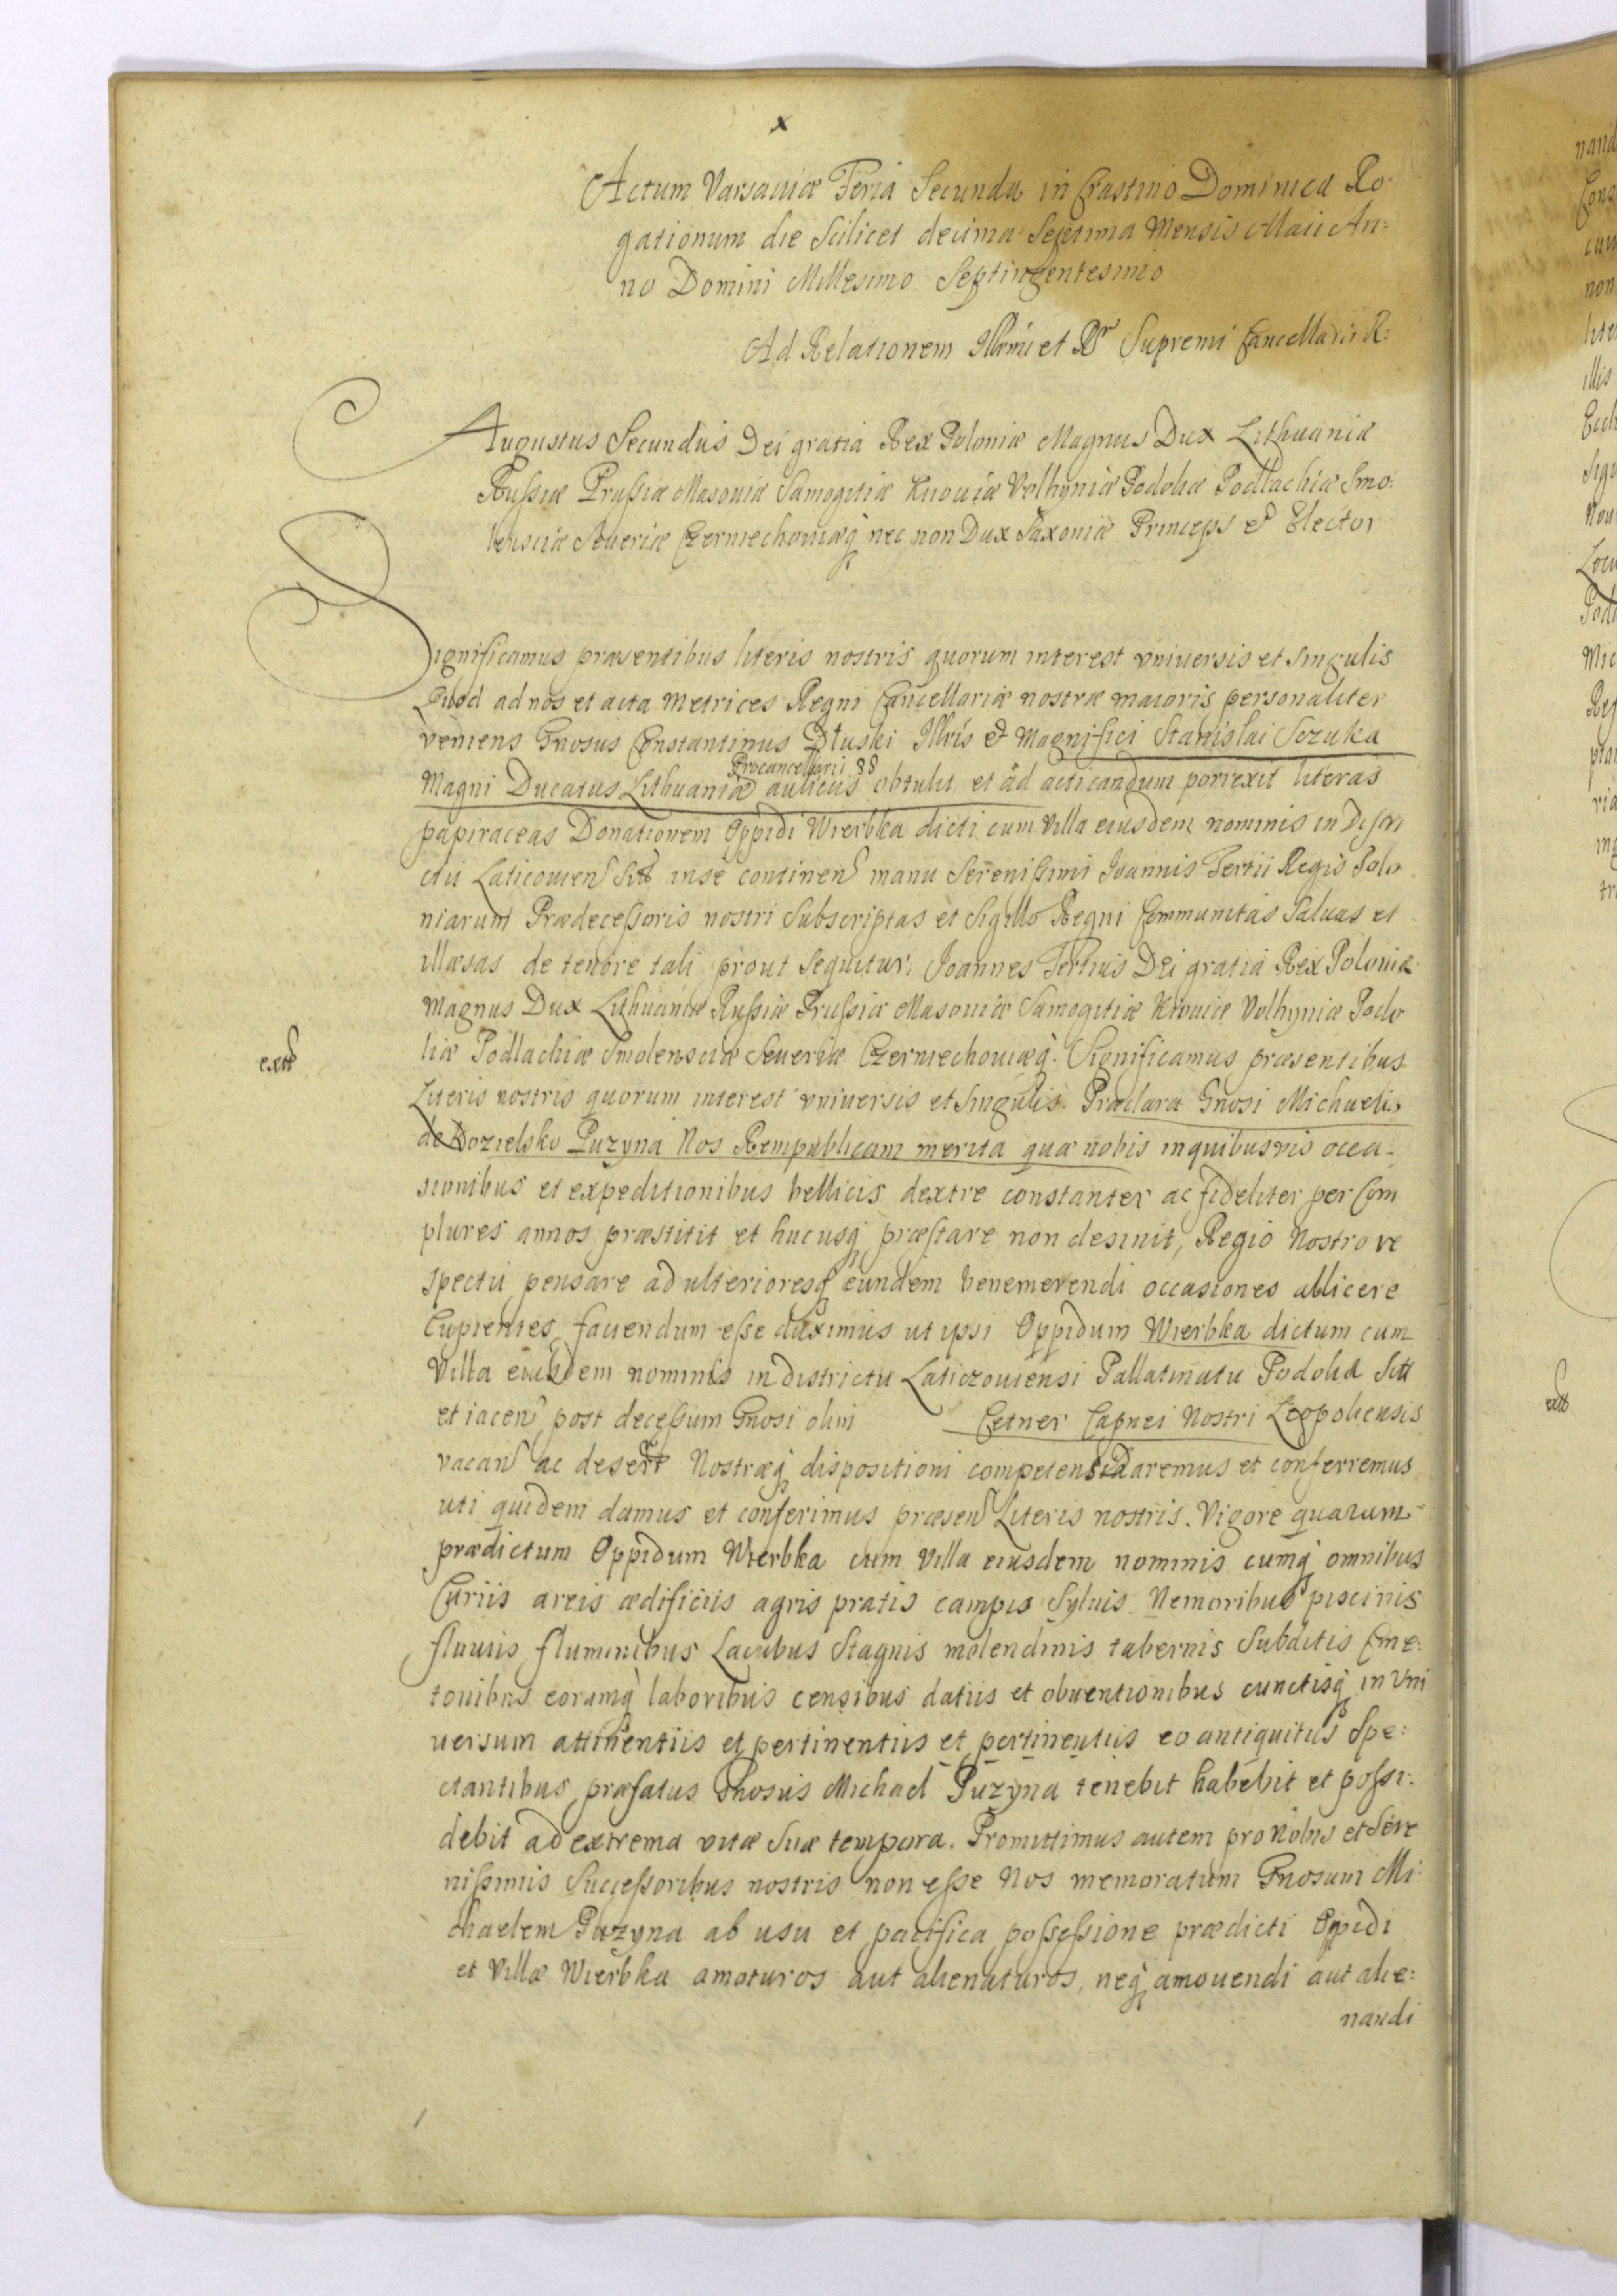 x
Actum Varsaviæ Feria Secunda in Crastino Dominica Ro-
gationum die Scilicet decima Septima Mensis Maii An:
no Domini Millesimo Septingentesimo
Ad Relationem Illrmi et Supremi Cancellarii R:
Augustus Secundus Dei gratia Rex Poloniæ Magnus Dux Lithuaniæ
Russiæ Prussiæ Masoviæ Samogitiæ Kiioviæ Volhyniæ Podoliæ Podlachiæ Smo:
lensciæ Severiæ Czerniechoviæq́ nec non Dux Saxoniæ Princeps et Elector
Significamus præsentibus literis nostris quorum interest universis et singulis
Quod ad nos et acta Metrices Regni Cancellariæ nostræ maioris personaliter
veniens Gnosus Constantinus Dłuski Illris et Magnifici Stanislai Sczuka
Procancellarii
Magni Ducatus Lithuaniæ aulicus obtulit et ad acticandum porrexit literas
papiraceas Donationem Oppidi Wierbka dicti cum villa eiusdem nominis in Distri
ctu Laticovien Sitt inse continen manu Serenissimi Joannis Tertii Regis Polo
niarum Prædecessoris nostri Subscriptas et Sigillo Regni Communitas Salvas et
illæsas de tenore tali prout sequitur: Joannes Tertius Dei gratia Rex Poloniæ
Magnus Dux Lithuaniæ Russiæ Prussiæ Masoviæ Samogitiæ Kiioviæ Volhyniæ Podo
liæ Podlachiæ Smolensciæ Severiæ Czerniechoviæq́. Significamus præsentibus
Literis nostris quorum interest universis et Singulis. Præclara Gnosi Michaelis
de Kozielsko Puzyna Nos Rempublicam merita quæ nobis in quibusvis occa-
sionibus et expeditionibus bellicis dextre constanter ac fideliter per Com
plures annos præstitit et hucusq́ præstare non desinit, Regio Nostro re
spectu pensare ad ulterioresq́ eundem benemerendi occasiones allicere
Cupientes, favendum esse duximus ut ipsi Oppidum Wierbka dictum cum
Villa eiusdem nominis in districtu Laticzoviensi Pallatinatu Podoliæ Sitt
et iacen post decessum Gnosi olim Cetner Capnei Nostri Leopoliensis
vacan ac desert Nostræq́ dispositioni competens daremus et conferremus
uti quidem damus et conferimus præsen Literis nostris. Vigore quarum
prædictum Oppidum Wierbka cum villa eiusdem nominis cumq́ omnibus
Curiis areis ædificiis agris pratis campis Sylvis Nemoribus piscinis
fluviis fluminibus Lacubus Stagnis molendinis tabernis Subditis Cme:
tonibus eorumq́ laboribus censibus datiis et obventionibus cunctisq́ in Uni
versum attinentiis et pertinentiis et pertinentiis eo antiquitus Spe:
ctantibus, præfatus Gnosus Michael Puzyna tenebit habebit et possi:
debit ad extrema vitæ Suæ tempora. Promittimus autem pro Nobis et Sere
nissimis Successoribus nostris non esse Nos memoratum Gnosum Mi
chaelem Puzyna ab usu et pacifica possessione prædicti Oppidi
et Villæ Wierbka amoturos aut alienaturos, neq́ amovendi aut alie:
nandi